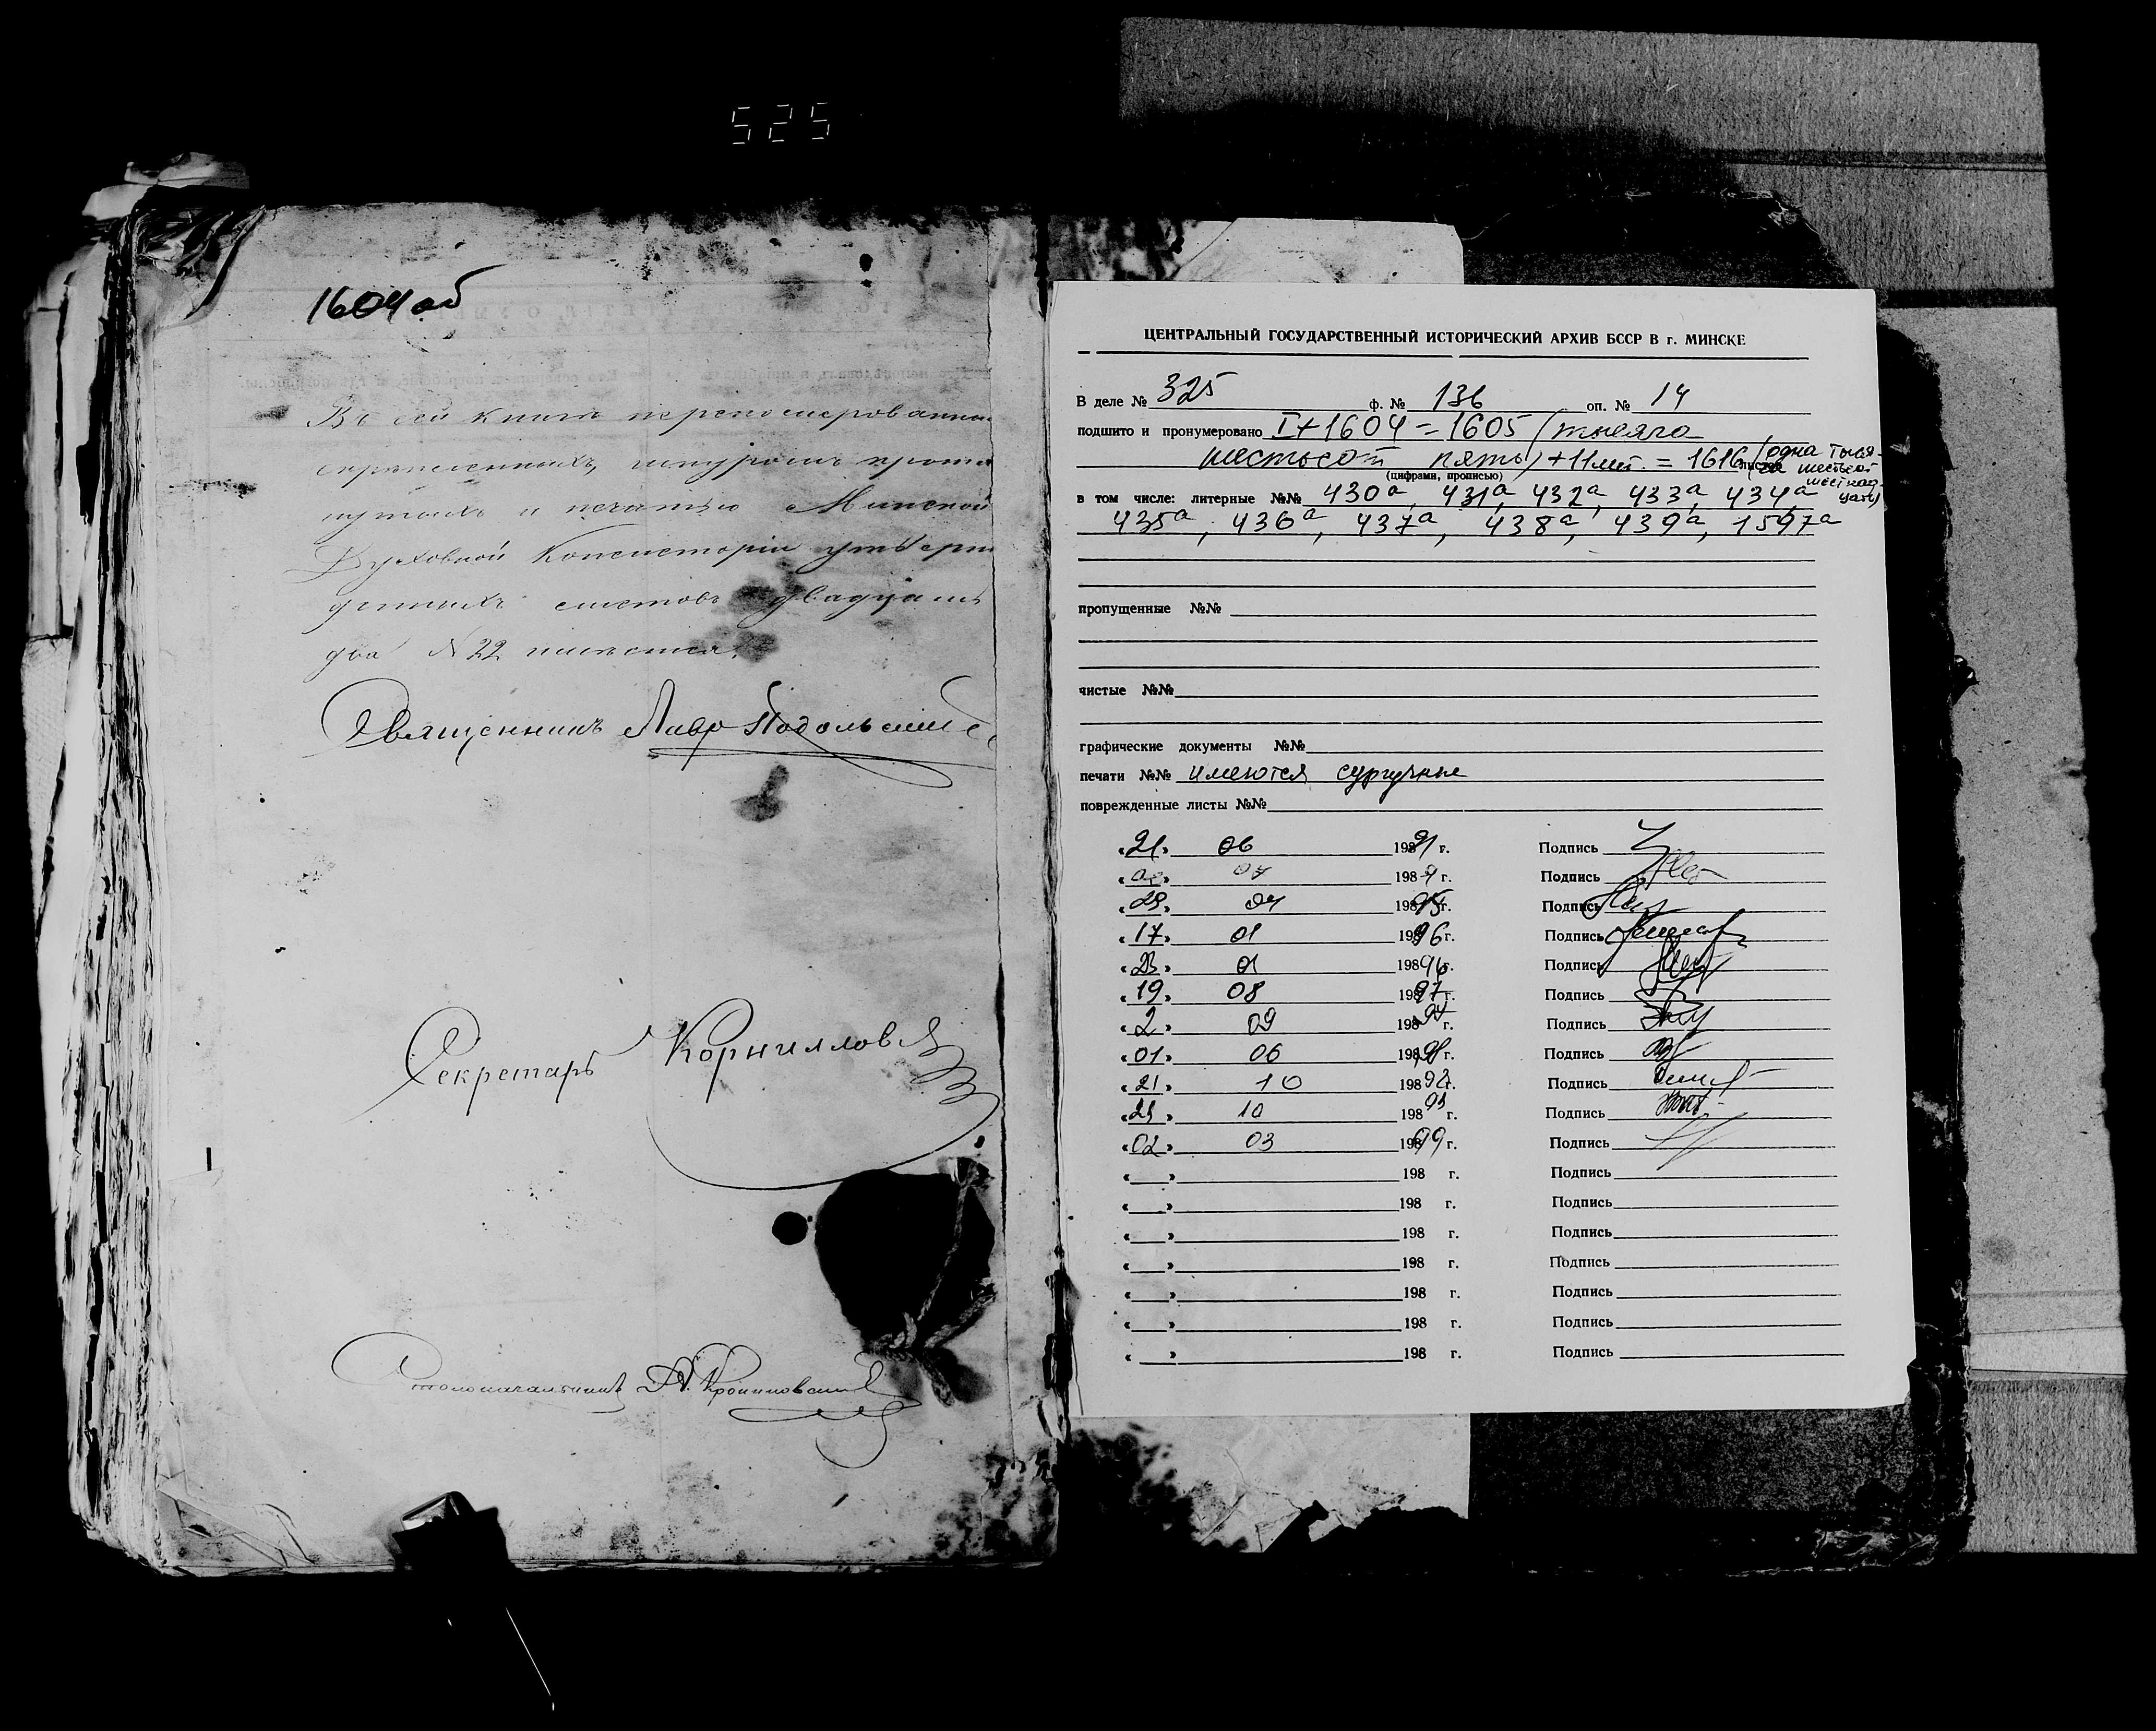 525
1604об
Въ сей книгѣ перенумерованныхъ
скрѣпленныхъ, шнуромъ прошну
тыхъ и печатью Минской
Духовной Консисторіи утверж
денныхъ листовъ двадцать
два № 22 имѣется.
Священникъ Лавр Подольскій
Секретарь Корнилловъ
Столоначальникъ
ЦЕНТРАЛЬНЫЙ ГОСУДАРСТВЕННЫЙ ИСТОРИЧЕСКИЙ АРХИВ БССР В г. МИНСКЕ
В деле № 325 ф. № 136 оп. № 14
подшито и пронумеровано I+1604=1605 (тысяча
шестьсот пять) +11 лит. = 1616 листов (одна тыся-
ча шестьсот
шестнад-
цать)
(цифрами, прописью)
в том числе: литерные №№ 430а, 431а, 432а, 433а, 434а
435а, 436а, 437а, 438а, 439а, 1597а
пропущенные №№
чистые №№
графические документы №№
печати №№ имеются сургучные
поврежденные листы №№
«21» 06 1991 г. Подпись
04 198 г. Подпись
04 19895 г. Подпись
«17» 01 19896 г. Подпись
«23» 01 19896 г. Подпись
«19» 08 19897 г. Подпись
«2» 09 198 г. Подпись
«01» 06 198 г. Подпись
«21» 10 198 г. Подпись
10 19893 г. Подпись
«02» 03 19899 г. Подпись
« » 198 г. Подпись
« » 198 г. Подпись
« » 198 г. Подпись
« » 198 г. Подпись
« » 198 г. Подпись
« » 198 г. Подпись
« » 198 г. Подпись